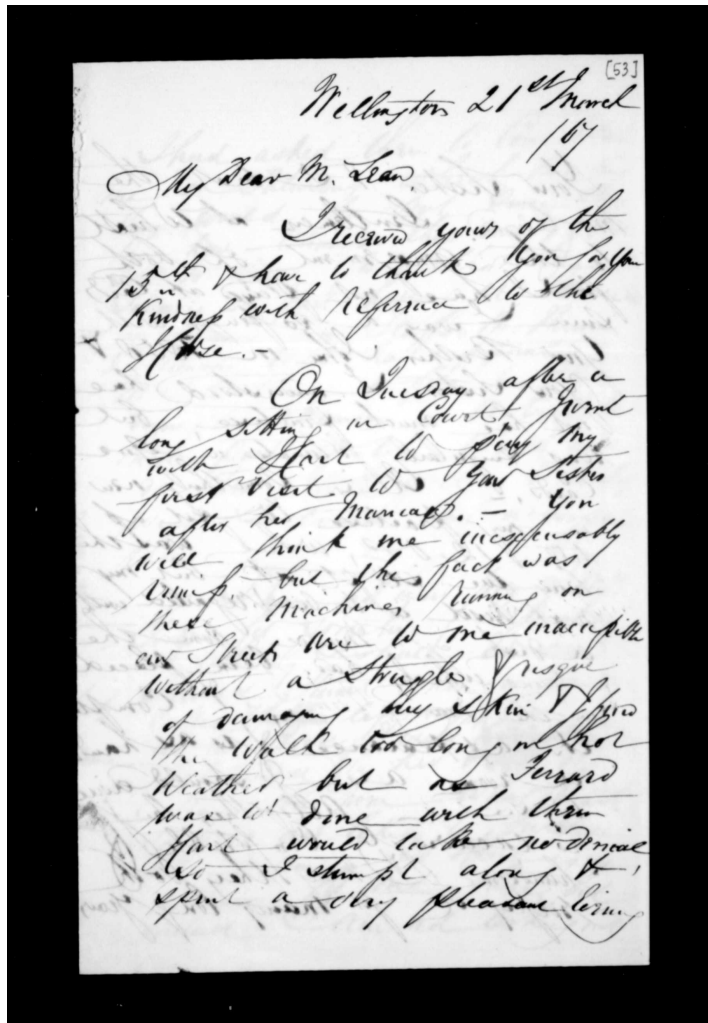 [53]
Wellington 21st March
/67
My Dear McLean
I received yours of the
15th & have to thank you for your
Kindness with reference to the
House. —
On Tuesday after a
long sitting in Court I went
with Hart to pay my
first visit to your Sister
after her Marriage. — You
will think me inexcusably
remiss, but the fact was
these Machines running on
our Streets are to me inaccessible
without a struggle & risque
of damaging my skin & I find
the walk too long in hot
Weather but as
was to dine with them
Hart would take no denial
so I stumpt along &
spent a very pleasant Evening